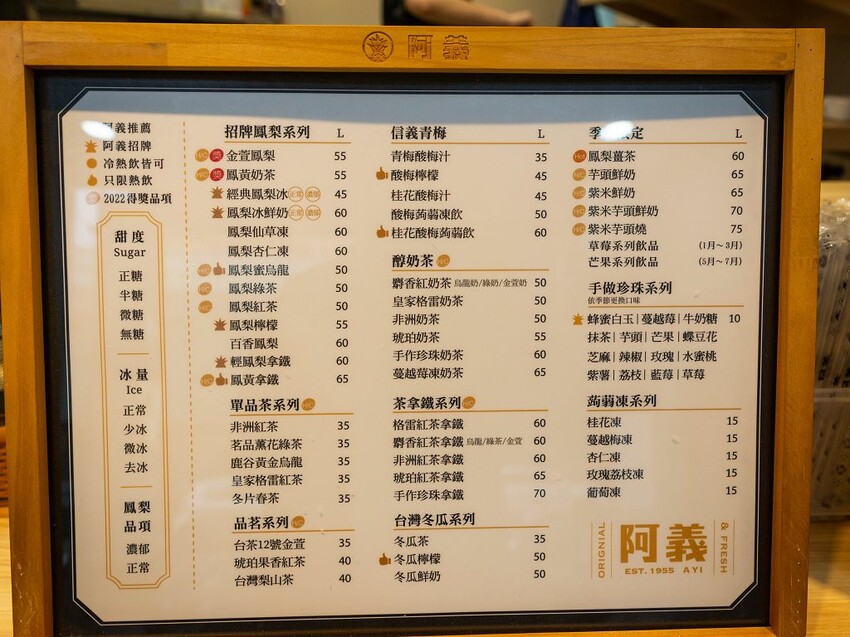 阿義
阿義推薦
阿義招牌
冷熱飲皆可
只限熱飲
2022得獎品項
甜度
Sugar
正糖
半糖
微糖
無糖
冰量
Ice
正常
少冰
微冰
去冰
鳳梨
品項
濃郁
正常
招牌鳳梨系列 L
金萱鳳梨 55
鳳黃奶茶 55
經典鳳梨冰 正常 濃郁 45
鳳梨冰鮮奶 正常 濃郁 60
鳳梨仙草凍 60
鳳梨杏仁凍 60
鳳梨蜜烏龍 50
鳳梨綠茶 50
鳳梨紅茶 50
鳳梨檸檬 55
百香鳳梨 60
輕鳳梨拿鐵 60
鳳黃拿鐵 65
單品茶系列 H/C
非洲紅茶 35
茗品薰花綠茶 35
鹿谷黃金烏龍 35
皇家格雷紅茶 35
冬片春茶 35
品茗系列 H/C
台茶12號金萱 35
琥珀果香紅茶 40
台灣梨山茶 40
信義青梅 L
青梅酸梅汁 35
酸梅檸檬 45
桂花酸梅汁 45
酸梅蒟蒻凍飲 50
桂花酸梅蒟蒻飲 60
醇奶茶 H/C
麝香紅奶茶 烏龍奶/綠奶/金萱奶 50
皇家格雷奶茶 50
非洲奶茶 50
琥珀奶茶 55
手作珍珠奶茶 60
蔓越莓凍奶茶 65
茶拿鐵系列 H/C
格雷紅茶拿鐵 60
麝香紅茶拿鐵 烏龍/綠茶/金萱 60
非洲紅茶拿鐵 60
琥珀紅茶拿鐵 65
手作珍珠拿鐵 70
台灣冬瓜系列
冬瓜茶 35
冬瓜檸檬 50
冬瓜鮮奶 50
季 定 L
Hot 鳳梨薑茶 60
H/C 芋頭鮮奶 65
H/C 紫米鮮奶 65
H/C 紫米芋頭鮮奶 70
H/C 紫米芋頭燒 75
草莓系列飲品 (1月～3月)
芒果系列飲品 (5月～7月)
手做珍珠系列
依季節更換口味
蜂蜜白玉|蔓越莓|牛奶糖 10
抹茶|芋頭|芒果|蝶豆花
芝麻|辣椒|玫瑰|水蜜桃
紫薯|荔枝|藍莓|草莓
蒟蒻凍系列
桂花凍 15
蔓越梅凍 15
杏仁凍 15
玫瑰荔枝凍 15
葡萄凍 15
ORIGNIAL
阿義
& FRESH
EST. 1955 AYI